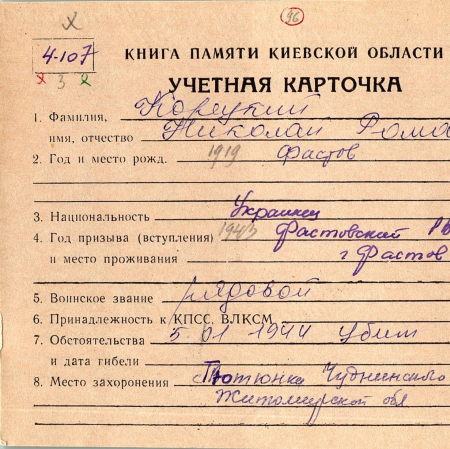 96
х
4-107
х 3 х
КНИГА ПАМЯТИ КИЕВСКОЙ ОБЛАСТИ
УЧЕТНАЯ КАРТОЧКА
1. Фамилия, Корецкий
имя, отчество Николай Рома
2. Год и место рожд. 1919 Фастов
3. Национальность Украинец
4. Год призыва (вступления) 1943 Фастовский РВ
и место проживания г Фастов
5. Воинское звание рядовой
6. Принадлежность к КПСС, ВЛКСМ
7. Обстоятельства 5 01 1944 убит
и дата гибели
8. Место захоронения с Тютюнка Чудниньского
Житомирской обл